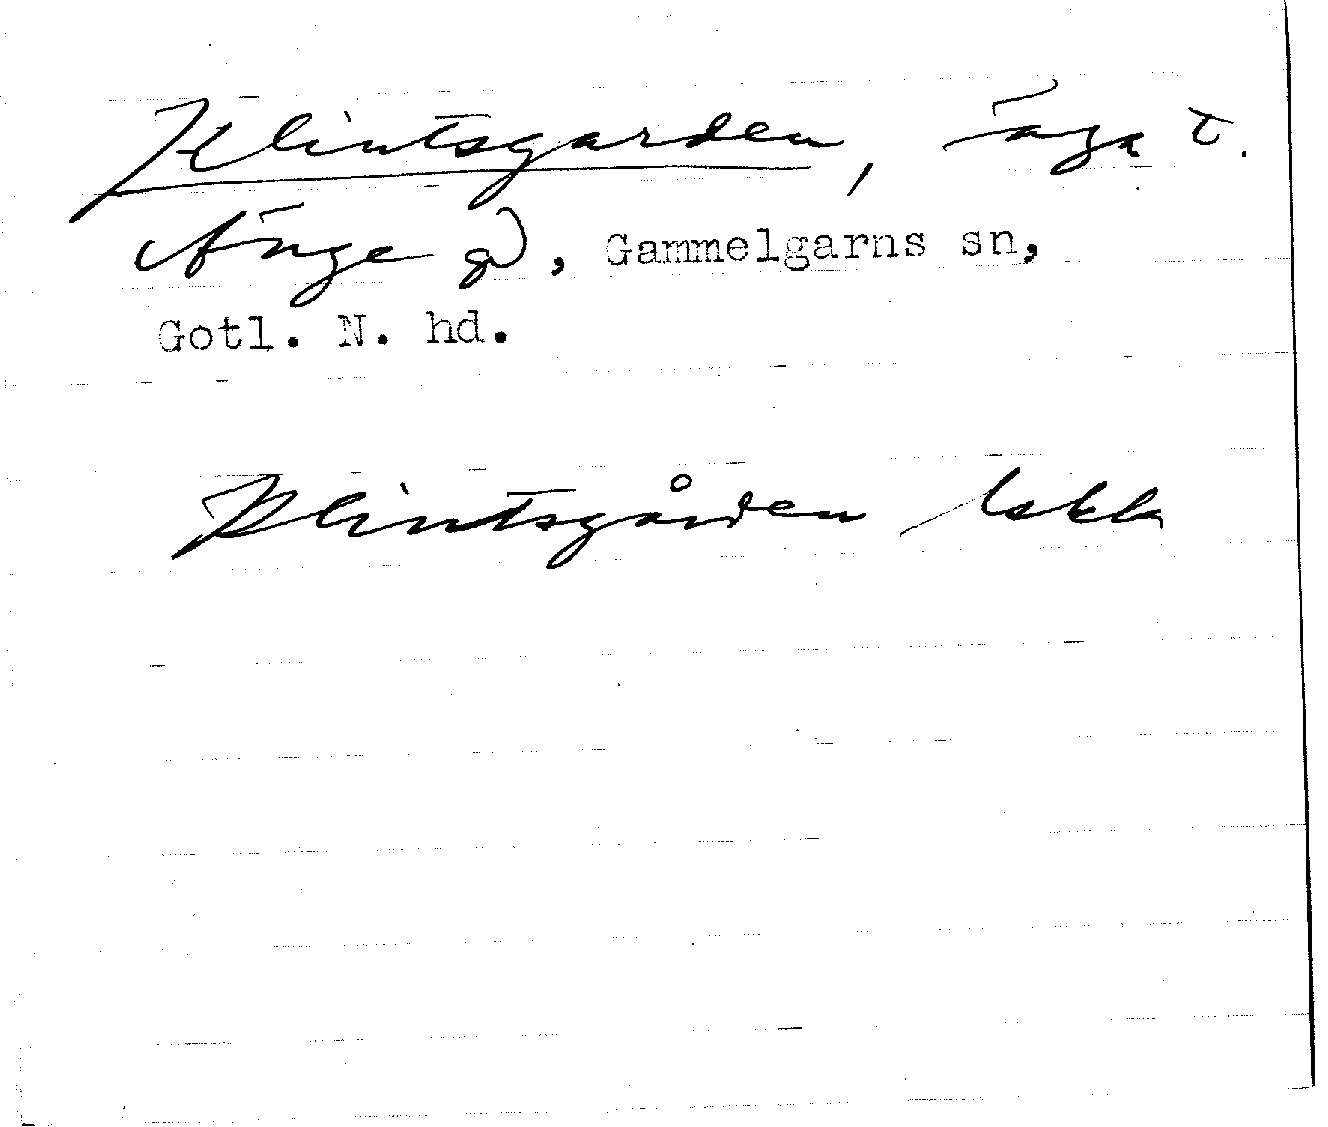 Klintsgarden, äga t.
Änge gd, Gammelgarns sn,
Gotl. N. hd.
Klintsgården